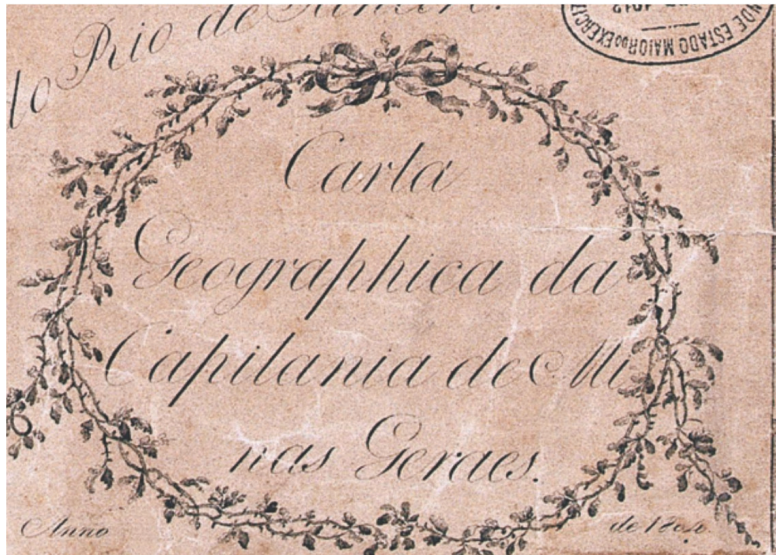 do Rio de Janeiro.
GRANDE ESTADO MAIOR DO EXERCITO
1912
Carta
Geographica da
Capitania de Mi
nas Geraes.
Anno
de